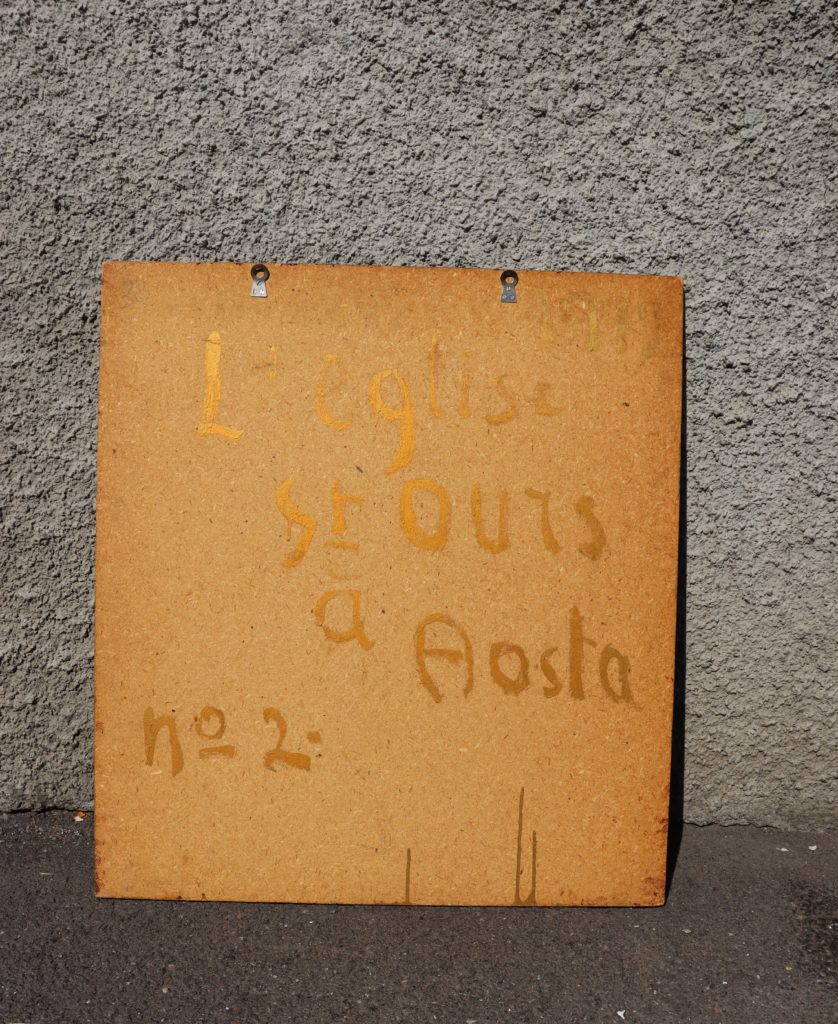 L'église
St Ours
à Aosta
nº 2.